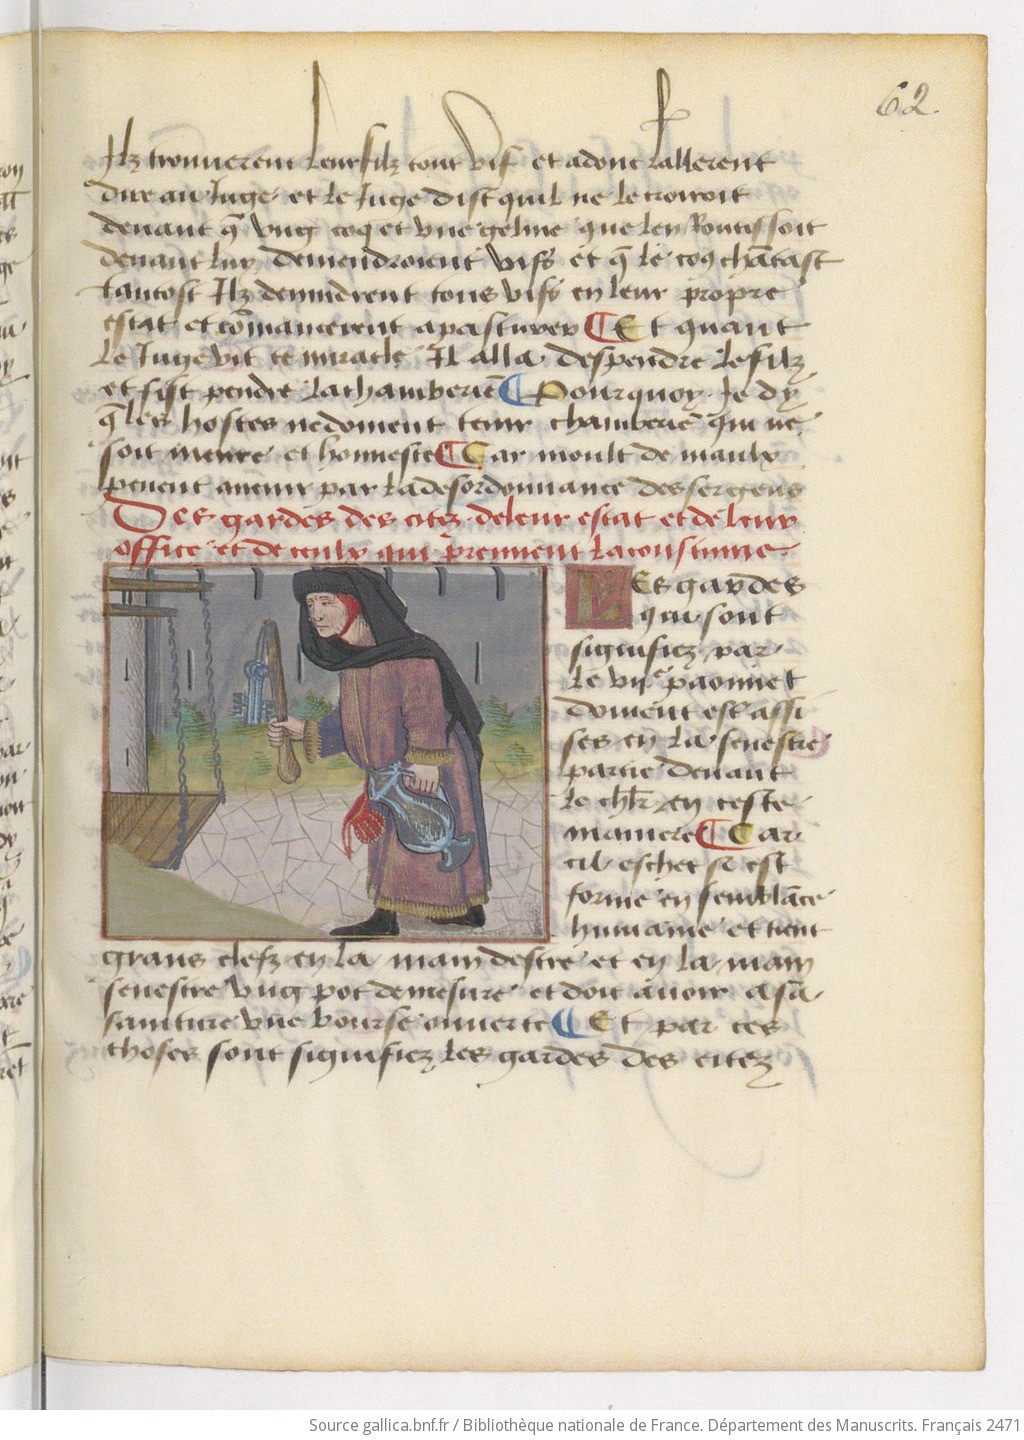 62.
Ilz trouuerent leur filz tout vif et adonc lallerent
dire au Iuge et le Iuge dist quil ne le croiroit
deuant q̄ vng coq et vne geline que len Routissoit
deuant luy deuiendroient vifs et q̄ le coq chātast
tantost Ilz deuindrent tous vifs en leur propre
estat et cōmancerent a pasturer ¶ Et quant
le Iuge vit ce miracle Il alla despendre le filz
et fist pendre la chamberiē ¶ Pourquoy Ie dy
q̄ les hostes ne doiuent tenir chamberiē qui ne
soit meure et honneste ¶ Car moult de maulx
peuent auenir par la desordonnance des sergens
Des gardes des citez de leur estat et de leur
office et de ceulx qui prennent la coustume
LEs gardes
qui sont
signifiez par
le viie paonnet
doiuent est' assi
ses en la senestre
partie deuant
le chlr en ceste
maniere ¶ Car
cil eschet si est
forme en semblāce
humaine et tient
grans clefz en la main destre et en la main
senestre vng pot de mesure et doit auoir a sa
sainture vne bourse ouuerte ¶ Et par ces
choses sont signifiez les gardes des citez
Source gallica.bnf.fr / Bibliothèque nationale de France. Département des Manuscrits. Français 2471